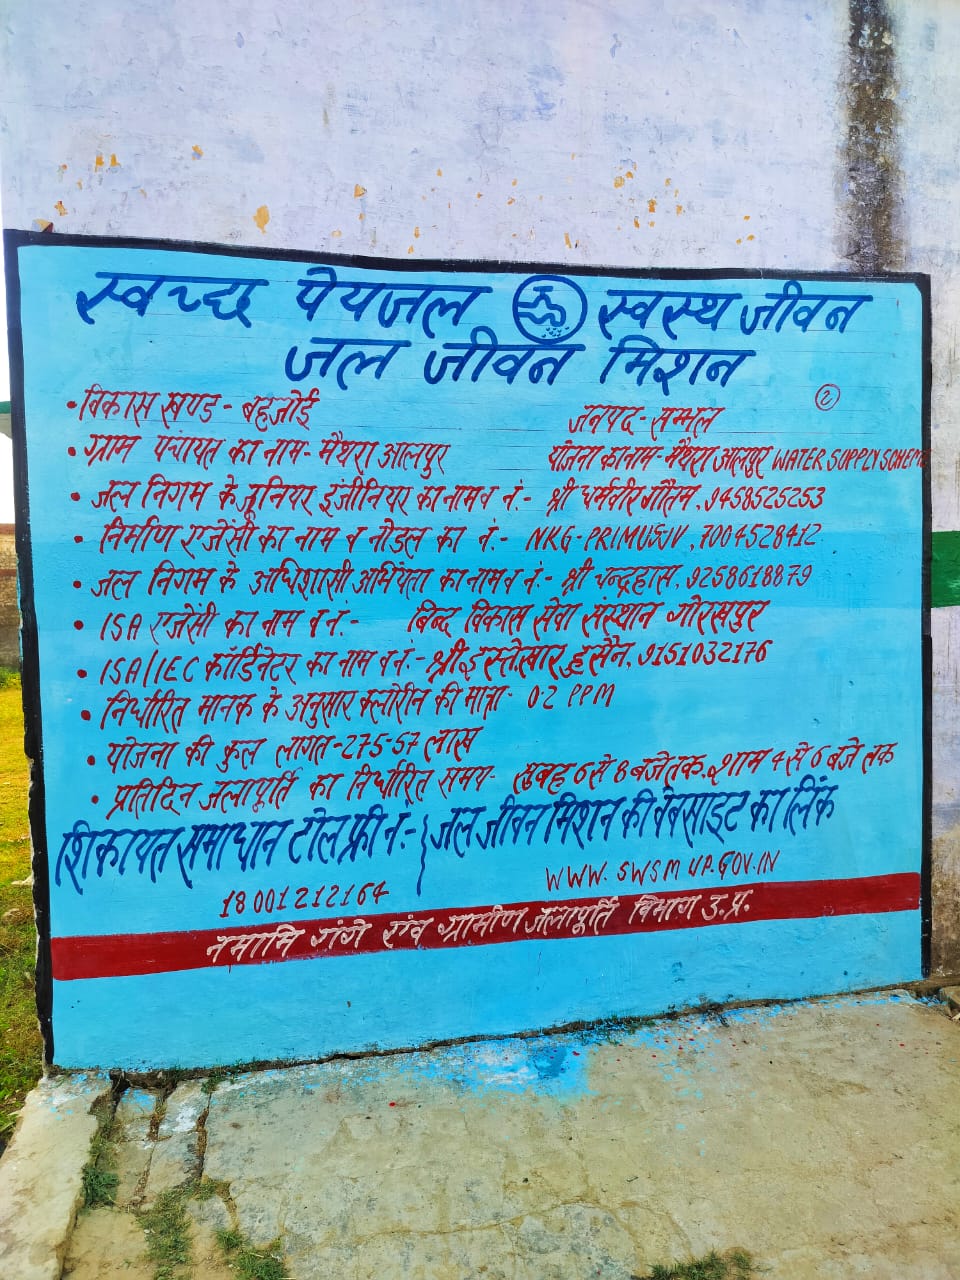 स्वच्छ पेयजल स्वस्थ जीवन
जल जीवन मिशन
२
•विकास खण्ड - बहजोई जनपद - सम्भल
•ग्राम पंचायत का नाम - मैथरा आलपुर योजना का नाम - मैथरा आलपुर WATER SUPPLY SCHEME
•जल निगम के जूनियर इंजीनियर का नाम व नं.- श्री धर्मवीर गौतम, 9458525253
•निर्माण एजेंसी का नाम व नोडल का नं.- NKG-PRIMUSJV, 7004528412
•जल निगम के अधिशासी अभियंता का नाम व नं.- श्री चन्द्रहास, 9258618879
•ISA एजेंसी का नाम व नं.- बिन्द विकास सेवा संस्थान गोरखपुर
•ISA/IEC कॉर्डिनेटर का नाम व नं.- श्री इस्तेखार हुसैन, 9151032176
•निर्धारित मानक के अनुसार क्लोरीन की मात्रा - 0.2 PPM
•योजना की कुल लागत - 275-57 लाख
•प्रतिदिन जलापूर्ति का निर्धारित समय - सुबह 6 से 8 बजे तक, शाम 4 से 6 बजे तक
शिकायत समाधान टोल फ्री नं.- जल जीवन मिशन की वेबसाइट का लिंक
18001212164 WWW.SWSMUP.GOV.IN
नमामि गंगे एंव ग्रामीण जलापूर्ति विभाग उ.प्र.